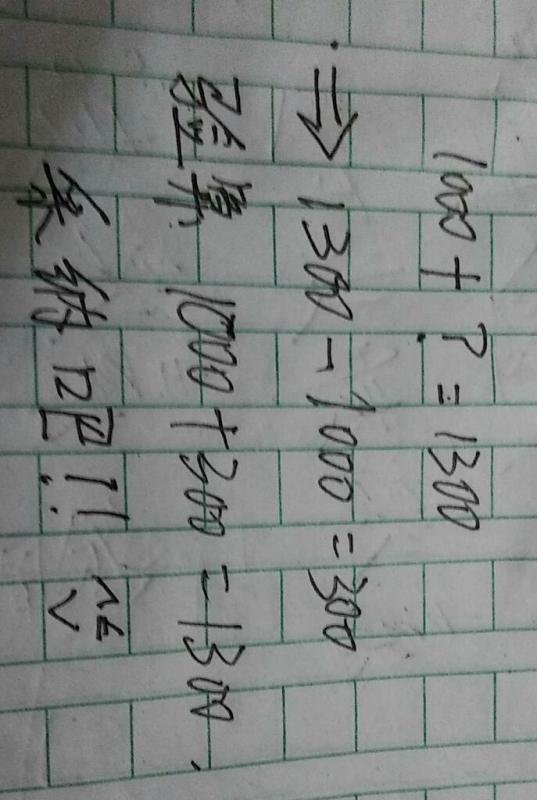 1000 + ? = 1300
⇒ 1300 - 1000 = 300
驗算 1000 + 300 = 1300.
!!